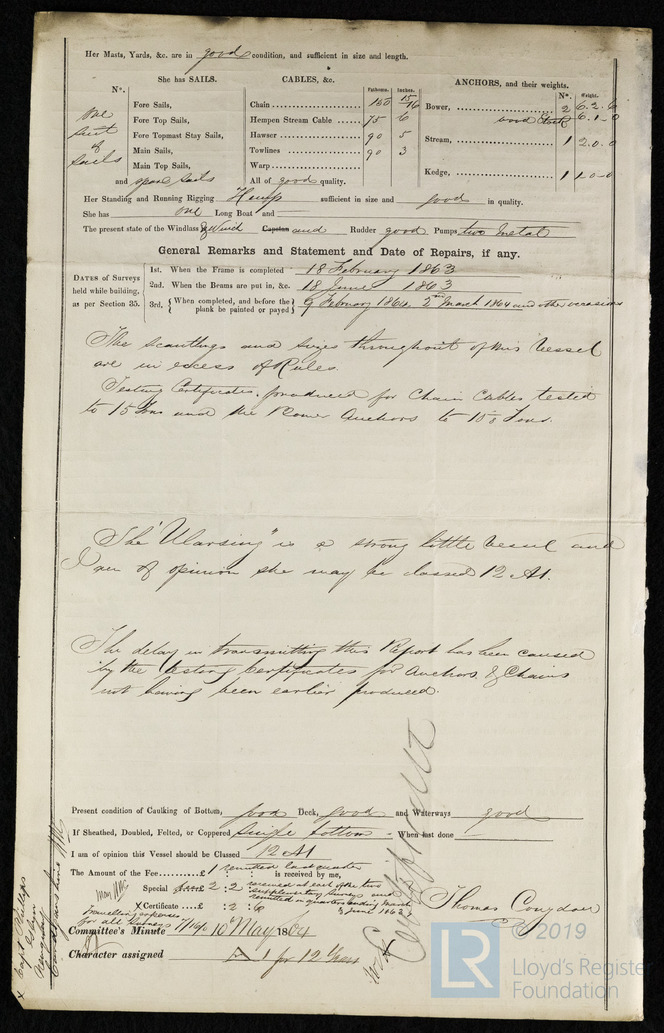 Her Masts, Yards, &c. are in good condition, and sufficient in size and length.
She has SAILS.
CABLES, &c.
Fathoms.
Inches.
ANCHORS, and their weights.
Nº.
Nº.
Weight.
one suit of Sails
Fore Sails,
Fore Top Sails,
Fore Topmast Stay Sails,
Main Sails,
Main Top Sails,
and spare sails
Chain 15/16
Hempen Stream Cable 75 6
Hawser 90 5
Towlines 90 3
Warp
All of good quality.
Bower, 2 6.2.6
6.1.0
Stream, 1 2.0.0
Kedge, 1 1.0.0
Her Standing and Running Rigging Hemp sufficient in size and good in quality.
She has one Long Boat and
The present state of the Windlass is good Capstan and Rudder good Pumps two Metal
General Remarks and Statement and Date of Repairs, if any.
DATES of Surveys held while building, as per Section 35.
1st. When the Frame is completed 18 February 1863
2nd. When the Beams are put in, &c. 18 June 1863
3rd. When completed, and before the plank be painted or payed 9 February 1864 2nd March 1864 and other occasions
The scantlings and sizes throughout of this Vessel
are in excess of Rules.
Testing Certificates produced for Chain Cables tested
to 15 Tons and the Bower Anchors to Tons.
The " " is a strong little Vessel and
I am of opinion she may be classed 12 A1.
The delay in transmitting this Report has been caused
by the testing Certificates for Anchors & Chains
not having been earlier produced.
Present condition of Caulking of Bottom, good Deck, good and Waterways good
If Sheathed, Doubled, Felted, or Coppered Single bottom - When last done
I am of opinion this Vessel should be Classed 12 A1
The Amount of the Fee £1 remitted last quarter is received by me,
Special £ 2 : 2 received at each of the two supplementary surveys and remitted in quarters ending March & June 1863
Certificate £ : 2 : 6
travelling expenses for all Surveys
Thomas Congdon
Committee's Minute 10 May 1864
Character assigned A 1 for 12 Years
x Capt Phillips
© 2019
LR
Lloyd's Register
Foundation